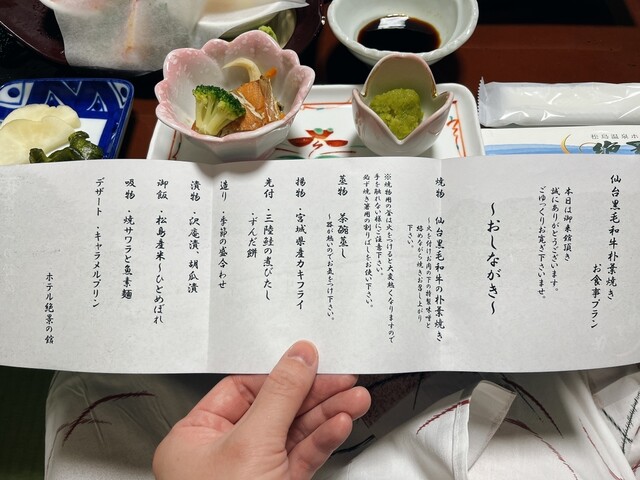 仙台黒毛和牛朴葉焼き
お食事プラン
本日は御来館頂き
誠にありがとうございます。
ごゆっくりお寛ぎ下さいませ。
～おしながき～
焼物 仙台黒毛和牛の朴葉焼き
～火を付けお肉の下の特製味噌と
絡めながら焼きお召し上がり
下さい。
※焼物用の釜は火をつけると大変熱くなりますので
手を触れない様にご注意下さい。
必ず焼き箸用の割りばしをお使い下さい。
蒸物 茶碗蒸し
～器が熱いのでお気をつけ下さい。
揚物 ・宮城県産カキフライ
先付 ・三陸鮭の煮びたし
・ずんだ餅
造り ・季節の盛合わせ
漬物 ・沢庵漬・胡瓜漬
御飯 ・松島産米～ひとめぼれ
吸物 ・焼サワラと魚素麺
デザート ・キャラメルプリン
ホテル絶景の館
松島温泉